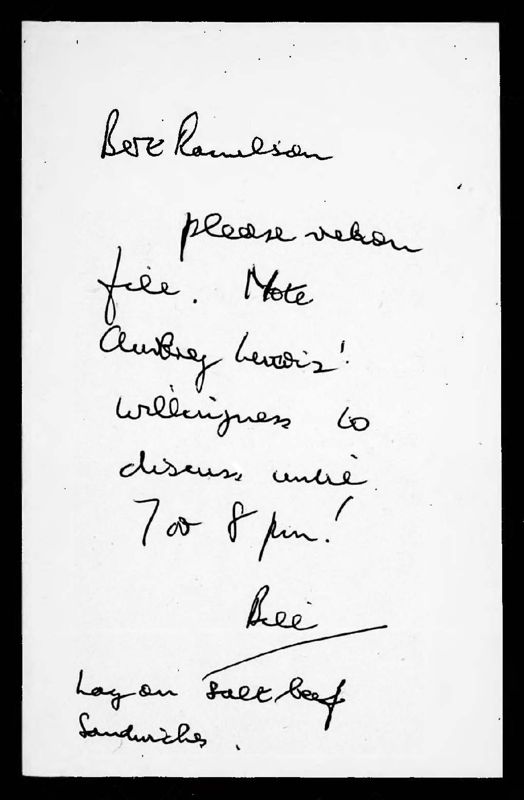 Bert Ramelson
please return
file. Note
Aubrey Lewis'
willingness to
discuss until
7 or 8 pm!
Bill
Lay on salt beef
Sandwiches.